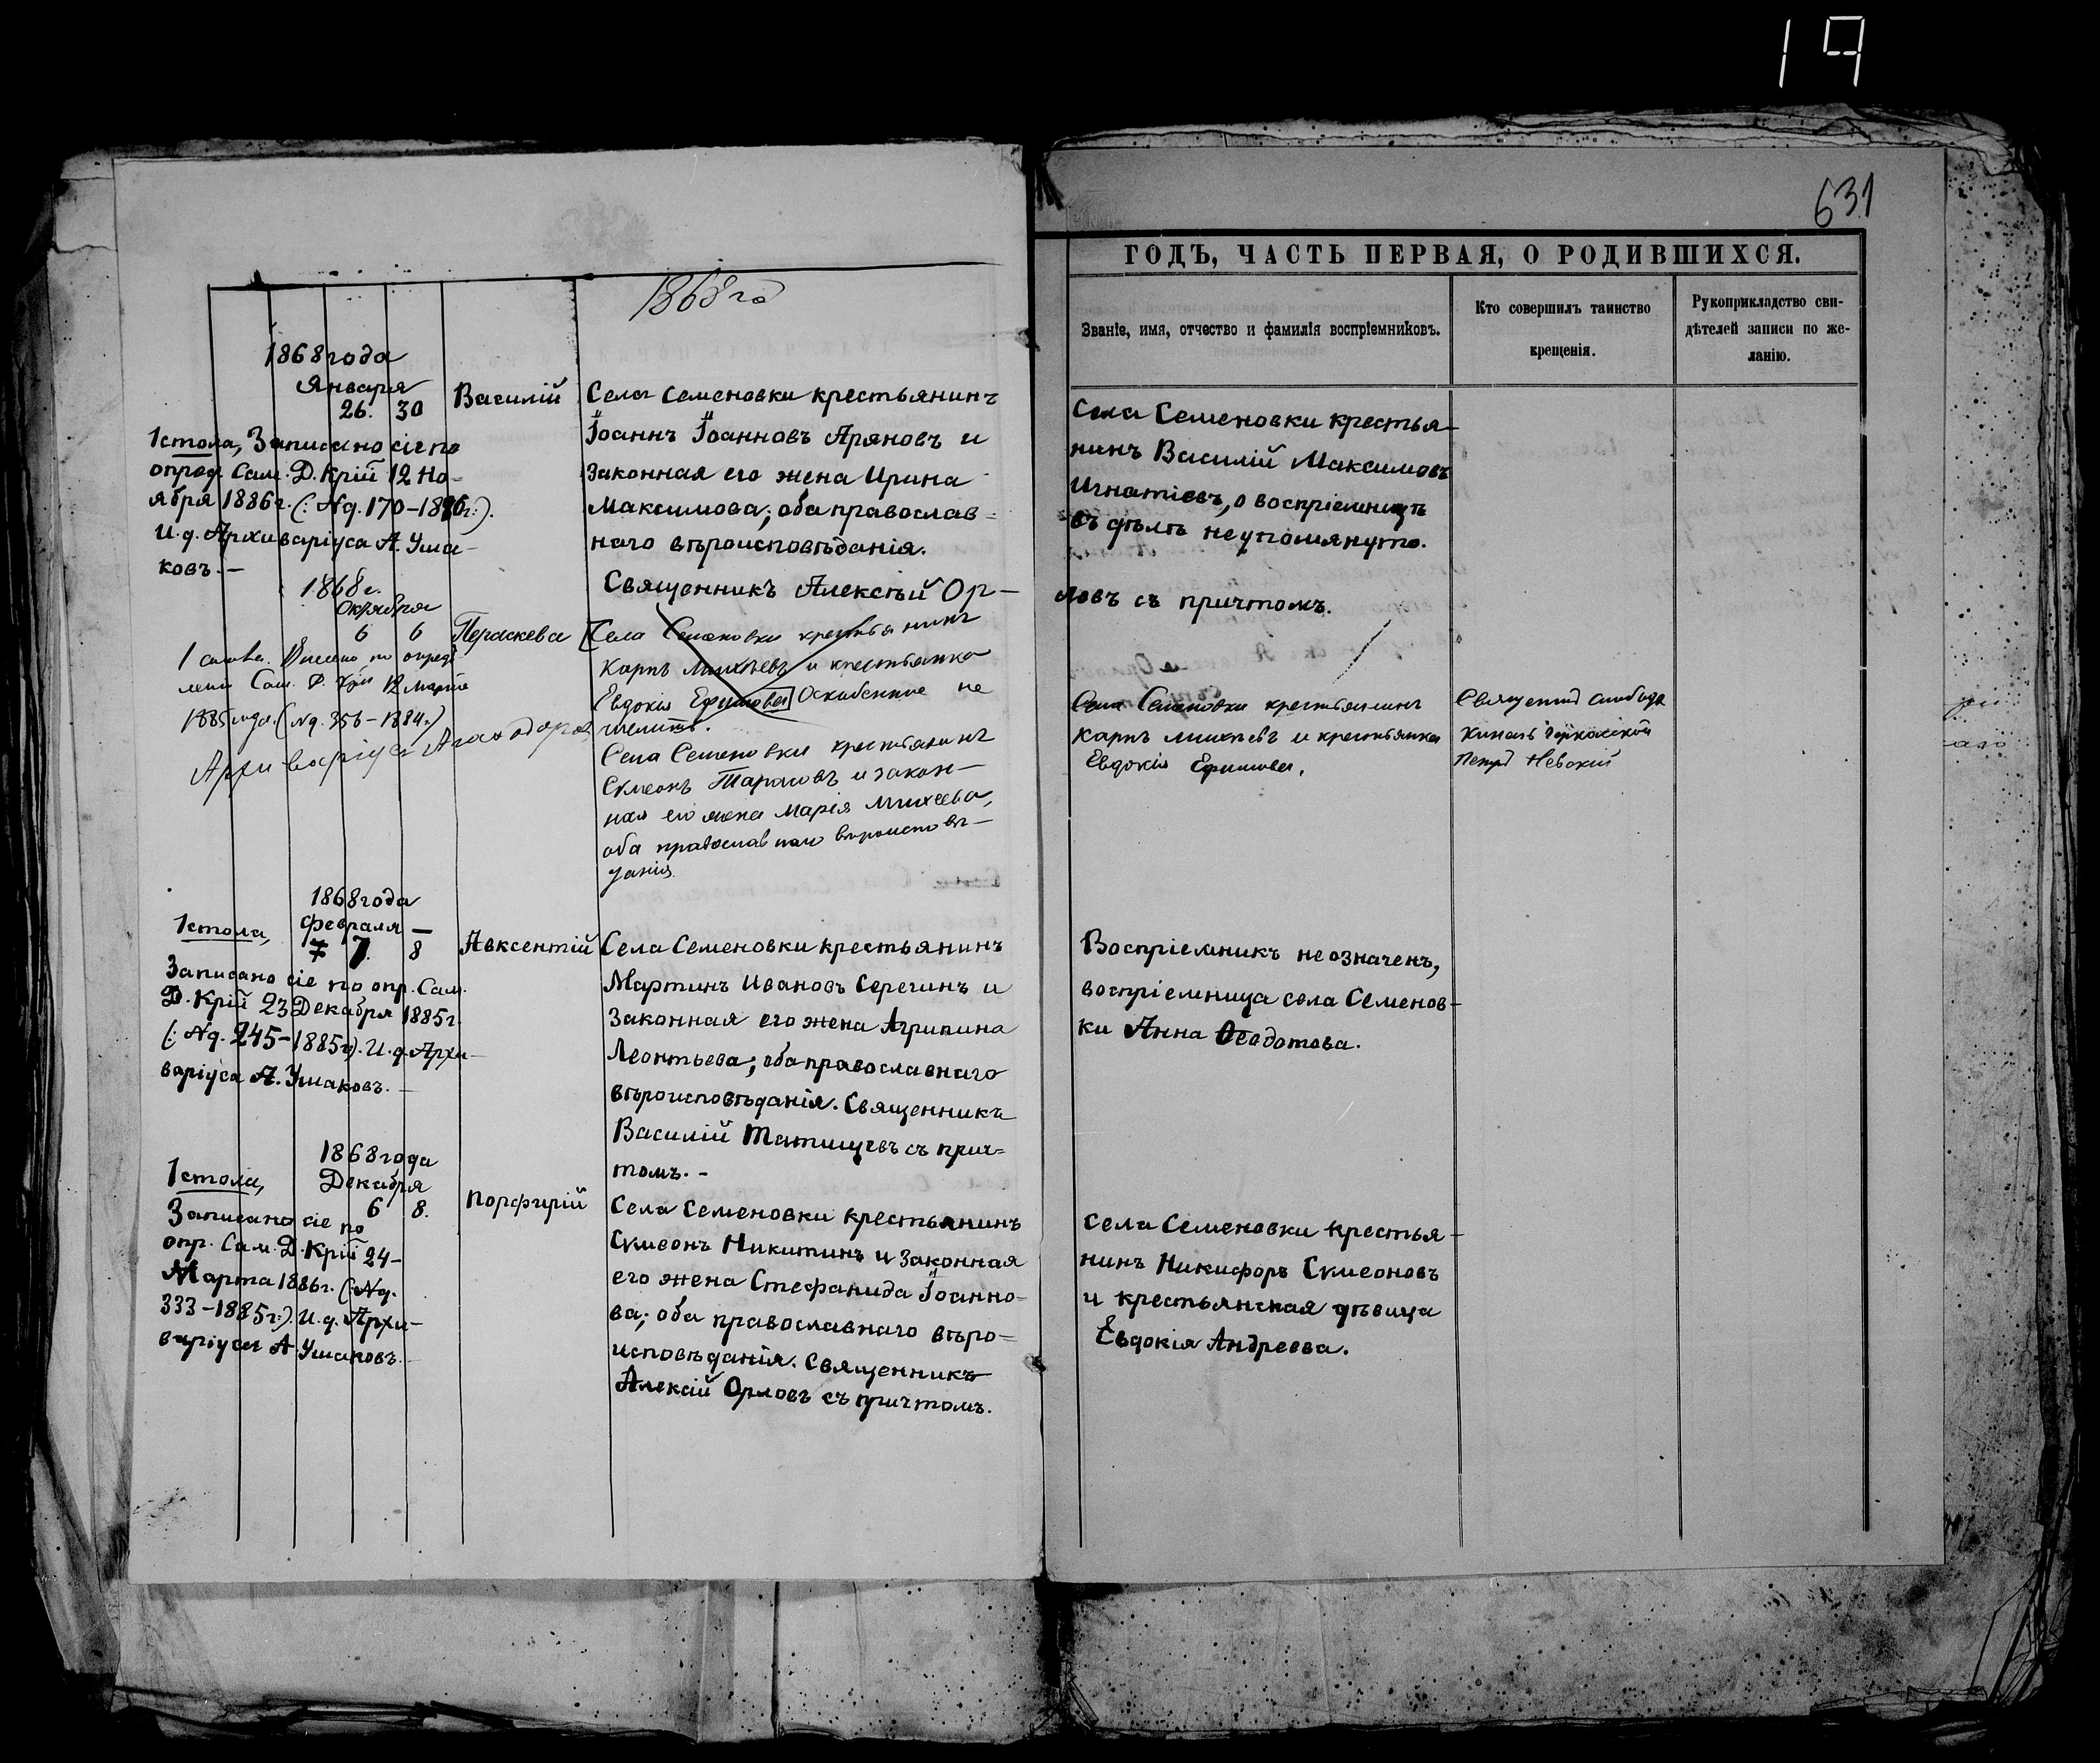 19
631
1868 го
ГОДЪ, ЧАСТЬ ПЕРВАЯ, О РОДИВШИХСЯ.
Званіе, имя, отчество и фамилія воспріемниковъ.
Кто совершилъ таинство
крещенія.
Рукоприкладство сви-
дѣтелей записи по же-
ланію.
1868 года
Января
26. 30
Василій
1 стола, Записано сіе по
опред. Сам. Д. Крій 12 Но-
ября 1886 г. (: № д. 170-1886 г:).
И. д. Архиваріуса А. Уша-
ковъ. —
Села Семеновки крестьянинъ
Іоаннъ Іоанновъ Аряновъ и
законная его жена Ирина
Максимова; оба православ-
наго вѣроисповѣданія.
Священникъ Алексѣй Ор-
Села Семеновки крестья-
нинъ Василій Максимовъ
Игнатіевъ, о воспріемницѣ
въ дѣлѣ не упомянуто.
ловъ съ причтомъ.
1868 г.
Октября
6 6
Параскева
1 стола. Внесено по опредѣ
ленію Сам. Д. Крій 12 Марта
1885 года. (№ д. 356-1884.)
Архиваріусъ
[Села Семеновки крестьянинъ
Карпъ Михѣевъ и крестьянка
Евдокія Ефимова] Оскобленное не
числить.
Села Семеновки крестьянинъ
Сѵмеонъ Тарасовъ и закон-
ная его жена Марія Михеева,
оба православнаго вѣроисповѣ-
данія.
Села Семеновки крестьянинъ
Карпъ Михѣевъ и крестьянка
Евдокія Ефимова.
Священникъ слободы
Кинель Черкасской
Петръ Невскій
1868 года
1 стола, Февраля —
7 7. 8
Авксентій
Записано сіе по опр. Сам.
Д. Крій 23 Декабря 1885 г.
(: № д. 245-1885 г:). И. д. Архи-
варіуса А. Ушаковъ. —
Села Семеновки крестьянинъ
Мартинъ Ивановъ Серегинъ и
законная его жена Агрипина
Леонтьева; оба православнаго
вѣроисповѣданія. Священникъ
Василій Татищевъ съ прич-
томъ. -
Воспріемникъ не означенъ,
воспріемница села Семенов-
ки Анна Ѳеодотова.
1868 года
1 стола, Декабря
6 8.
Порфирій
Записано сіе по
опр. Сам. Д. Крій 24-
Марта 1886 г. (: № д.
333-1885 г:). И. д. Архи-
варіуса А Ушаковъ. —
Села Семеновки крестьянинъ
Сѵмеонъ Никитинъ и законная
его жена Стефанида Іоанно-
ва; оба православнаго вѣро-
исповѣданія. Священникъ
Алексій Орловъ съ причтомъ.
Села Семеновки крестья-
нинъ Никифоръ Сѵмеоновъ
и крестьянская дѣвица
Евдокія Андреева.